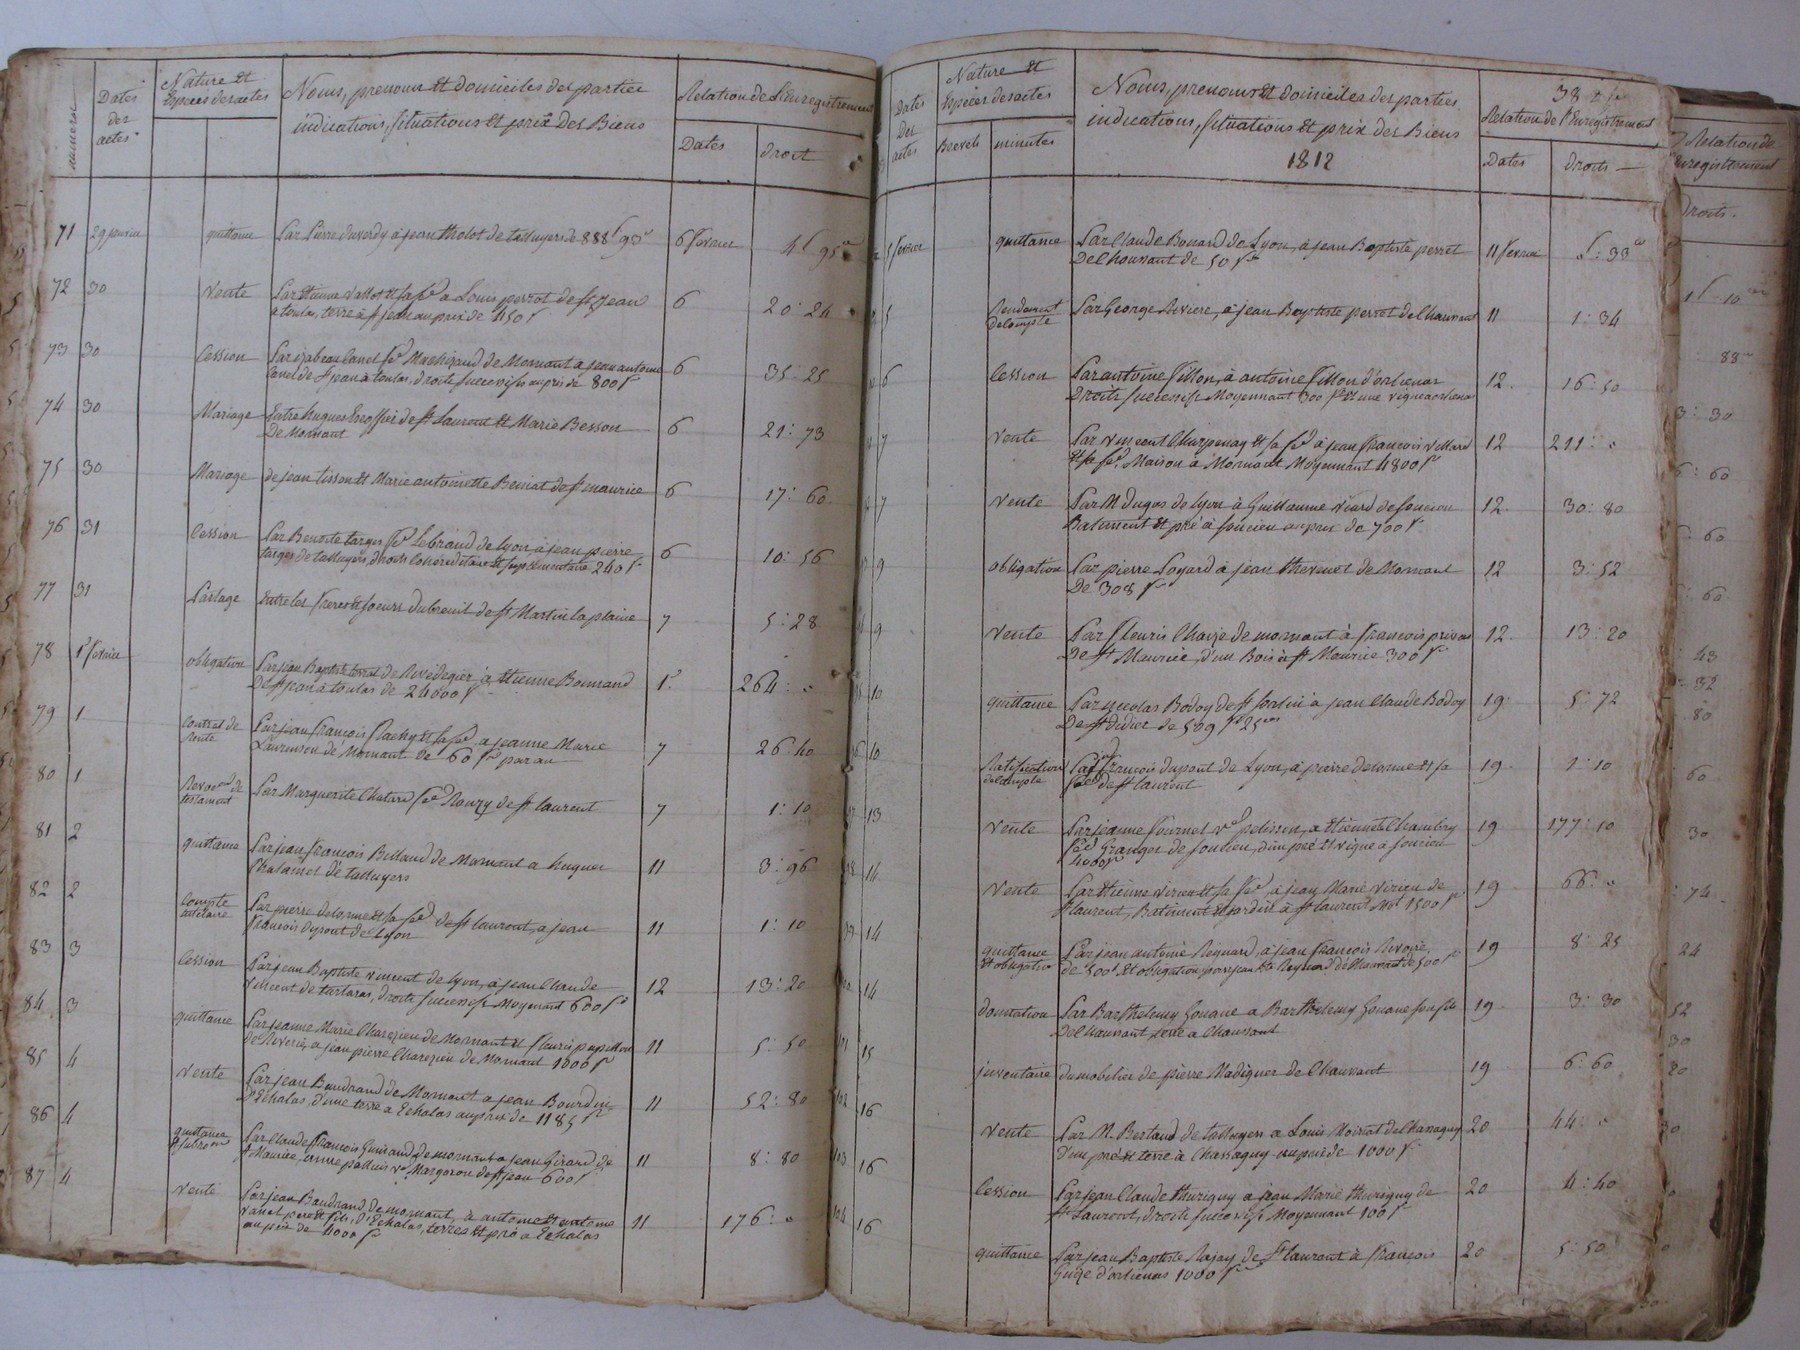 numeros
Dates
des
actes
Nature et
Especes des actes
Noms, prenoms et domiciles des partie
indications, situations et prix Des Biens
Relation de L'Enregistrement
Dates
droit
71 29 janvier quittance Par Pierre duverdy a jean tholot de talluyers de 888f 90c 6 fevrier 4f 95c
72 30 Vente Par Etienne Vallot et sa fe a Louis perrot de st jean
a toulas, terre a st jean au prix de 450f 6 20:24
73 30 Cession Par izabeau Canel fe Machizaud de Mornant a jean antoine
Canel de st jean a toulas, droits successifs au prix de 800f 6 35:25
74 30 Mariage Entre hugues Escoffier de st Laurent et Marie Besson
De Mornant 6 21:73
75 30 Mariage de jean tisson et Marie antoinette Beniat de st maurice 6 17:60
76 31 Cession Par Benoite targes fe Lebraud de Lyon a jean pierre
targes de talluyers, droits Cohereditaire et suplementaire 240f 6 10:56
77 31 Partage entre les freres et soeurs dubreuil de st Martin la plaine 7 5:28
78 1r fevrier obligation Par jean Baptiste terrat de Rivedegier a Etienne Bonnand
De st jean a toulas de 24000f 1r 264:"
79 1 Contrat de
Rente Par jean francois flachy et sa fe a jeanne Marie
Laurenson de Mornant de 60f par an 7 26:40
80 1 Revocon de
testament Par Marguerite Chatard fe Rouzy de st laurent 7 1:10
81 2 quittance Par jean francois Billaud de Mornant a hugues
Chalamel de talluyers 11 3:96
82 2 Compte
tutelaire Par pierre delorme et sa fe de st laurent, a jean
francois dupont de Lyon 11 1:10
83 3 Cession Par jean Baptiste vincent de lyon, a jean Claude
vincent de tartaras, droits successifs Moyenant 600f 12 13:20
84 3 quittance Par jeanne Marie Charezieu de Mornant et fleuris papillon
de Riverie, a jean pierre Charezieu de Mornant 1000f 11 5:50
85 4 Vente Par jean Baudrand de Mornant a jean Bourdin
D'Echalas, d'une terre a Echalas au prix de 1185f 11 52:80
86 4 quittance
Par Claude francois Guiraud de mornant a jean Girard de
st Maurice, anne palluis ve Margaron de st jean 600f 11 8:80
87 4 Vente Par jean Baudrand de mornant, a antoine et antoine
vanel pere et fils, d'Echalas, terres et pré a Echalas
au prix de 4000f 11 176:"
Dates
Des
actes
Nature et
Especes des actes
Brevets
minutes
Noms, prenoms et domiciles des parties,
indications, situations et prix des Biens
1812
38
Relation de l'Enregistrement
Dates
droits
5 fevrier quittance Par Claude Bonard de Lyon, a jean Baptiste perret
De Chaussant de 50f 11 fevrier :33c
5 Rendement
de Compte Par George Riviere, a jean Baptiste perret de Chaussant 11 1:34
6 Cession Par antoine fillon, a antoine fillon d'orlienas
Droits successifs Moyennant 300f et une vigne a orlienas 12 16:50
7 Vente Par vincent Charpenay et sa fe a jean francois Villard
et sa fe, Maison a Mornant Moyennant 4800f 12 211:"
7 Vente Par M Dugas de lyon a Guillaume viard de soucieu
Batiment et pré a soucieu au prix de 700f 12 30:80
9 obligation Par pierre Goyard a jean thevenet de Mornant
De 308f 12 3:52
9 Vente Par fleuris Chaize de mornant a francois privas
De st Maurice, d'un Bois a st Maurice 300f 12 13:20
10 quittance Par nicolas Bodoy de st sorlin a jean Claude Bodoy
De st didier de 509f 25c 19 5:72
10 Ratification
de Compte Par francois dupont de Lyon, a pierre delorme et sa
fe de st laurent 19 1:10
13 Vente Par jeanne fournel ve pelisson, a Etiennete Chambry
fe Granger de soucieu, d'un pré et vigne a soucieu
4000f 19 177:10
14 Vente Par Etienne virieu et sa fe, a jean Marie virieu de
st laurent, Batiment et jardin a st laurent Mt 1500f 19 66:"
14 quittance
et obligation Par jean antoine Reynard, a jean francois Rivoire
de 500f et obligation par jean Bte Reynard de Chaussant de 500f 19 8:25
14 donation Par Barthelemy Gouane a Barthelemy Gouane son fils
De Chaussant, terre a Chaussant 19 3:30
15 inventaire du mobilier de pierre Madignier de Chaussant 19 6:60
102 16 Vente Par M. Bertaud de talluyers a Louis Moirat de Chassagny
d'un pré et terre a Chassagny au prix de 1000f 20 44:"
103 16 Cession Par jean Claude thurigny a jean Marie thurigny de
st Laurent, droits successifs Moyennant 100f 20 4:40
104 16 quittance Par jean Baptiste Rajay de st laurent a francois
Guize d'orlienas 1000f 20 5:50
Relation de
Enregistrement
Droits